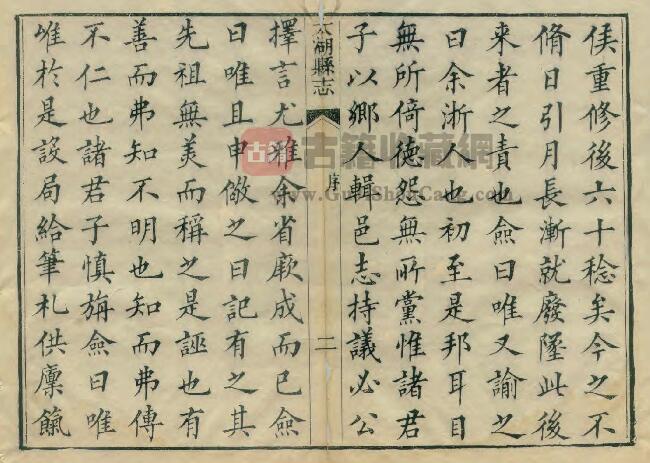 侯重修後六十稔矣今之不
脩日引月長漸就廢墜此後
來者之責也僉曰唯又諭之
曰余浙人也初至是邦耳目
無所倚徳怨無所黨惟諸君
子以鄉人輯邑志持議必公
太湖縣志
序
二
擇言尤雅余省厥成而已僉
曰唯且申儆之曰記有之其
先祖無美而稱之是誣也有
善而弗知不明也知而弗傳
不仁也諸君子慎旃僉曰唯
唯於是設局給筆札供廩餼
古籍收藏網